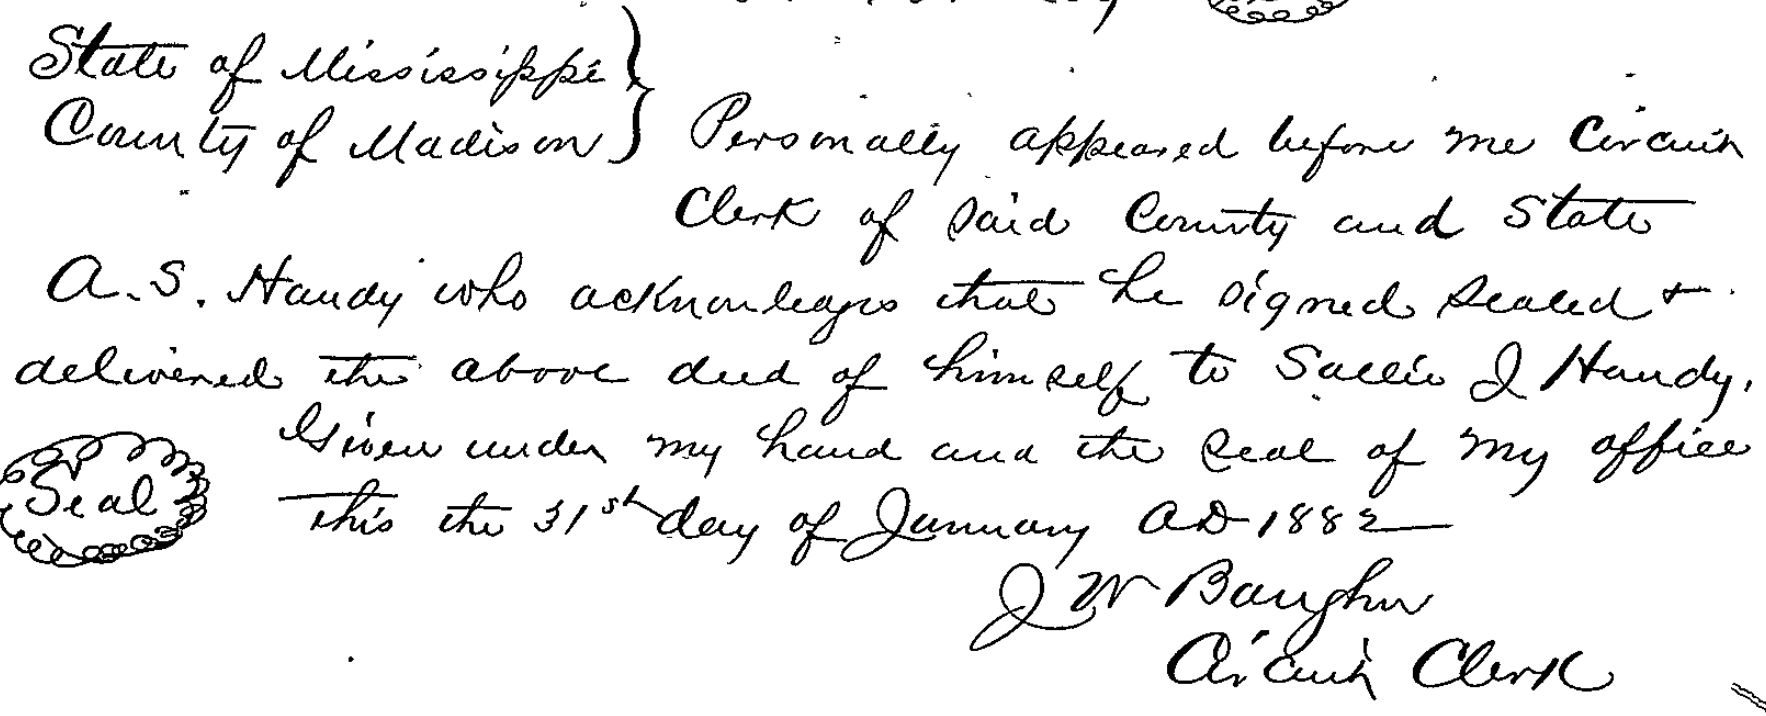 State of Mississippi }
County of Madison } Personally appeared before me Circuit
Clerk of said County and State
A. S. Handy who acknowledges that he signed sealed +
delivered the above deed of himself to Sallie J Handy,
Given under my hand and the seal of my office
Seal
this the 31st day of January AD 1882
J W Baughn
Circuit Clerk